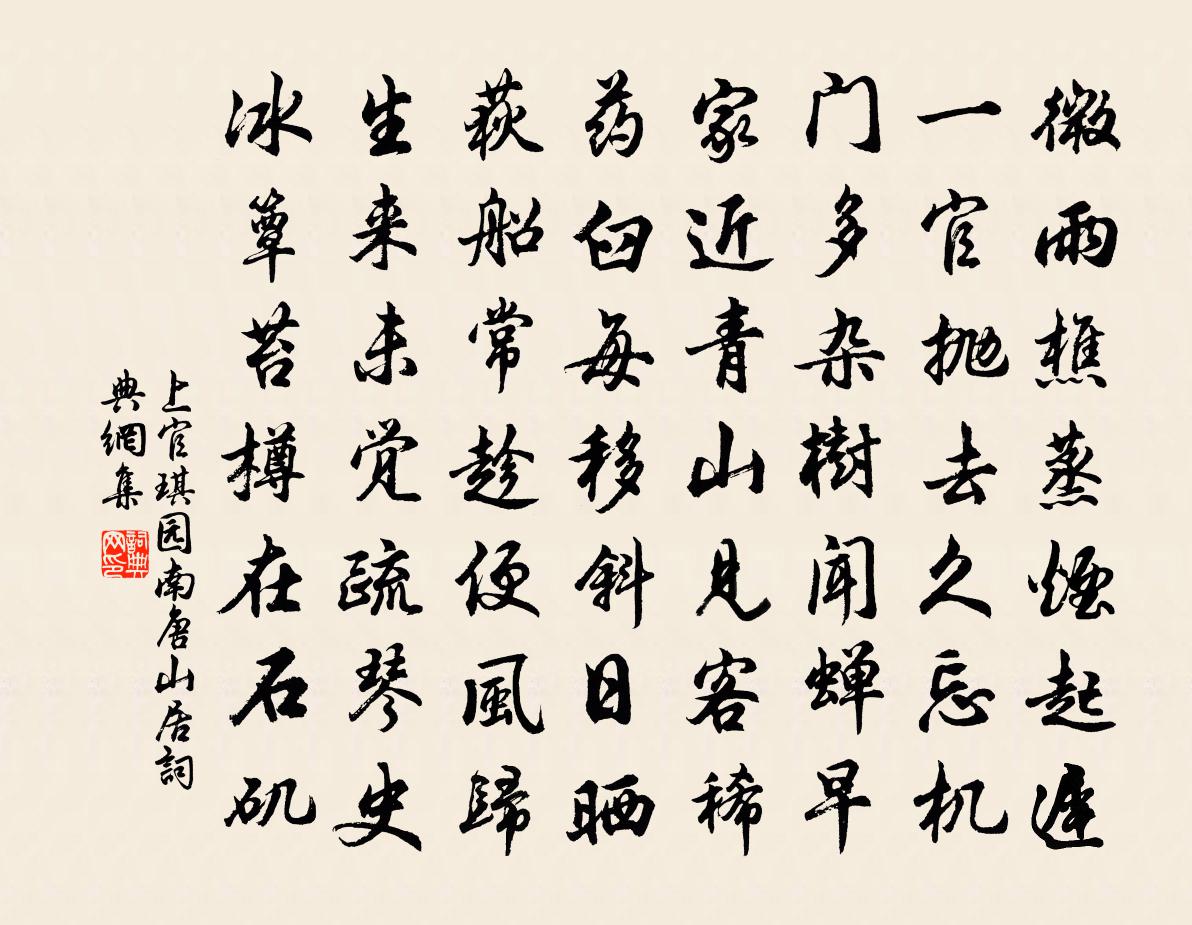 微雨樵蒸煙起遲
一官抛去久忘机
门多杂樹聞蝉早
家近青山見客稀
药臼每移斜日晒
萩船常趁便風歸
生来未觉疏琴史
冰簟苔樽在石矶
上官琪园南唐山居詞
典網集
詞典网印